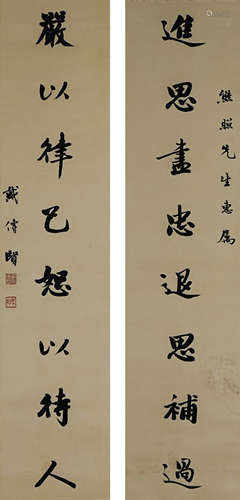 熊照先生惠屬
進思盡忠退思補過
嚴以律己恕以待人
戴傳賢